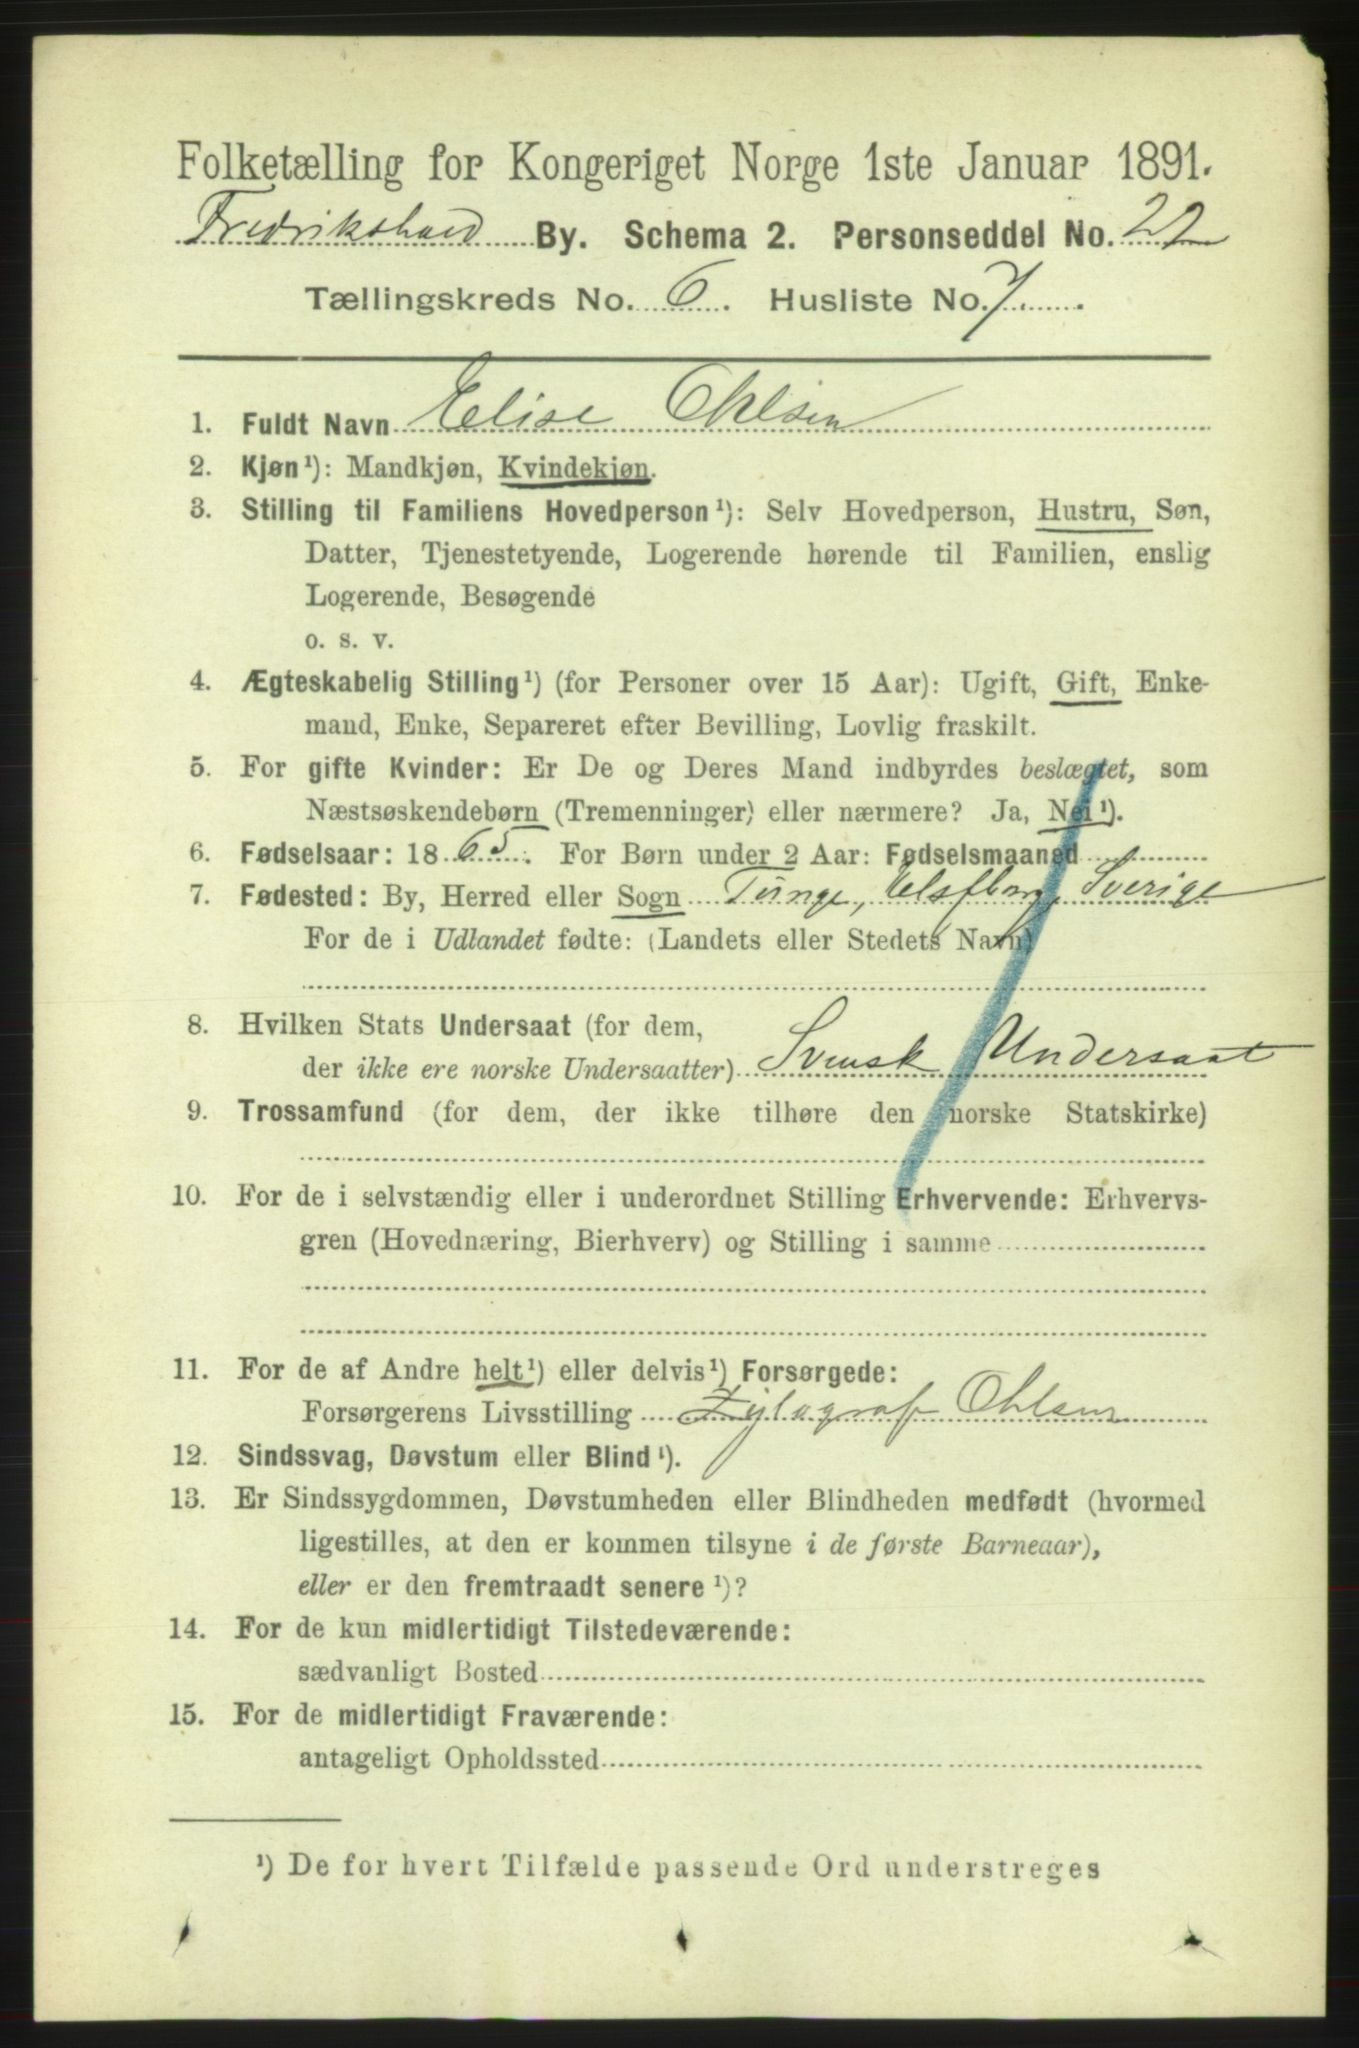 Folketælling for Kongeriget Norge 1ste Januar 1891.
Fredrikshald By. Schema 2. Personseddel No. 22
Tællingskreds No. 6. Husliste No. 7.
1. Fuldt Navn Elise Ohlsen
2. Kjøn¹): Mandkjøn, Kvindekjøn.
3. Stilling til Familiens Hovedperson¹): Selv Hovedperson, Hustru, Søn,
Datter, Tjenestetyende, Logerende hørende til Familien, enslig
Logerende, Besøgende
o. s. v.
4. Ægteskabelig Stilling¹) (for Personer over 15 Aar): Ugift, Gift, Enke-
mand, Enke, Separeret efter Bevilling, Lovlig fraskilt.
5. For gifte Kvinder: Er De og Deres Mand indbyrdes beslægtet, som
Næstsøskendebørn (Tremenninger) eller nærmere? Ja, Nei¹).
6. Fødselsaar: 1865. For Børn under 2 Aar: Fødselsmaaned
7. Fødested: By, Herred eller Sogn Tunge, Elsfborg, Sverige
For de i Udlandet fødte: (Landets eller Stedets Navn)
8. Hvilken Stats Undersaat (for dem,
der ikke ere norske Undersaatter) Svensk Undersaat
9. Trossamfund (for dem, der ikke tilhøre den norske Statskirke)
10. For de i selvstændig eller i underordnet Stilling Erhvervende: Erhvervs-
gren (Hovednæring, Bierhverv) og Stilling i samme
11. For de af Andre helt¹) eller delvis¹) Forsørgede:
Forsørgerens Livsstilling Zylograf Ohlsen
12. Sindssvag, Døvstum eller Blind¹).
13. Er Sindssygdommen, Døvstumheden eller Blindheden medfødt (hvormed
ligestilles, at den er kommen tilsyne i de første Barneaar),
eller er den fremtraadt senere¹)?
14. For de kun midlertidigt Tilstedeværende:
sædvanligt Bosted
15. For de midlertidigt Fraværende:
antageligt Opholdssted
¹) De for hvert Tilfælde passende Ord understreges